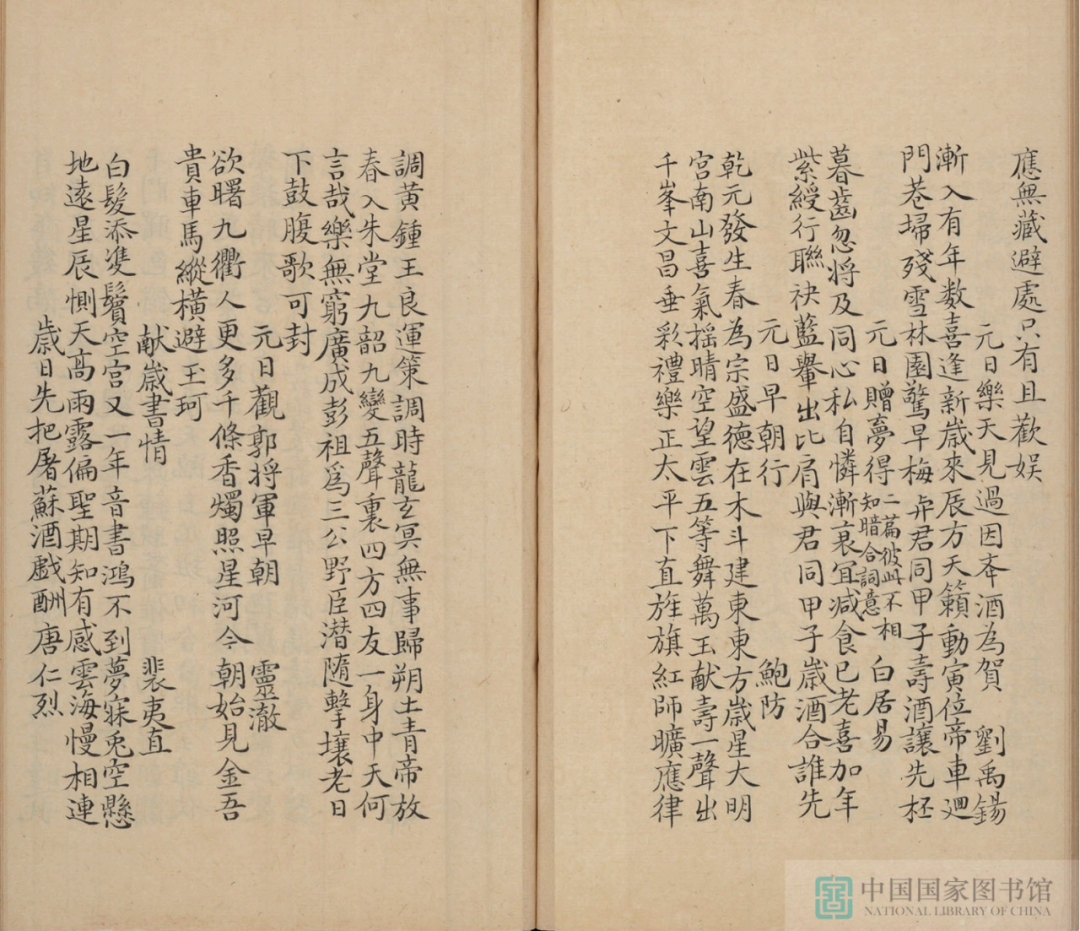 應無藏避處只有且歡娱
元日樂天見過因夲酒為賀 劉禹錫
漸入有年数喜逢新嵗來辰方天籟動寅位帝車廻
門巷埽殘雪林園驚早梅㐧君同甲子壽酒讓先柸
元日贈夢得 二篇彼此不相知暗合詞意 白居易
暮齒忽將及同心私自憐漸衰冝減食已老喜加年
紫綬行聮袂藍轝出比肩與君同甲子嵗酒合誰先
元日早朝行 鮑防
乾元發生春為宗盛德在木斗建東東方嵗星大明
宮南山喜氣揺晴空望雲五等舞萬玉献壽一聲出
千峯文昌垂彩禮樂正太平下直旌旗紅師曠應律
調黄鍾王良運策調時龍玄冥無事歸朔土青帝放
春入朱堂九韶九變五聲裏四方四友一身中天何
言哉樂無窮廣成彭祖爲三公野臣潜随擊壤老日
下鼓腹歌可封
元日觀郭将軍早朝 靈澈
欲曙九衢人更多千條香燭照星河今朝始見金吾
貴車馬縱橫避玉珂
献嵗書情 裴夷直
白髪添䨇鬢空宮又一年音書鴻不到夢寐兎空懸
地逺星辰惻天髙雨露偏聖期知有感雲海慢相連
嵗日先把屠蘇酒戲酬唐仁烈
中国国家图书馆
NATIONAL LIBRARY OF CHINA